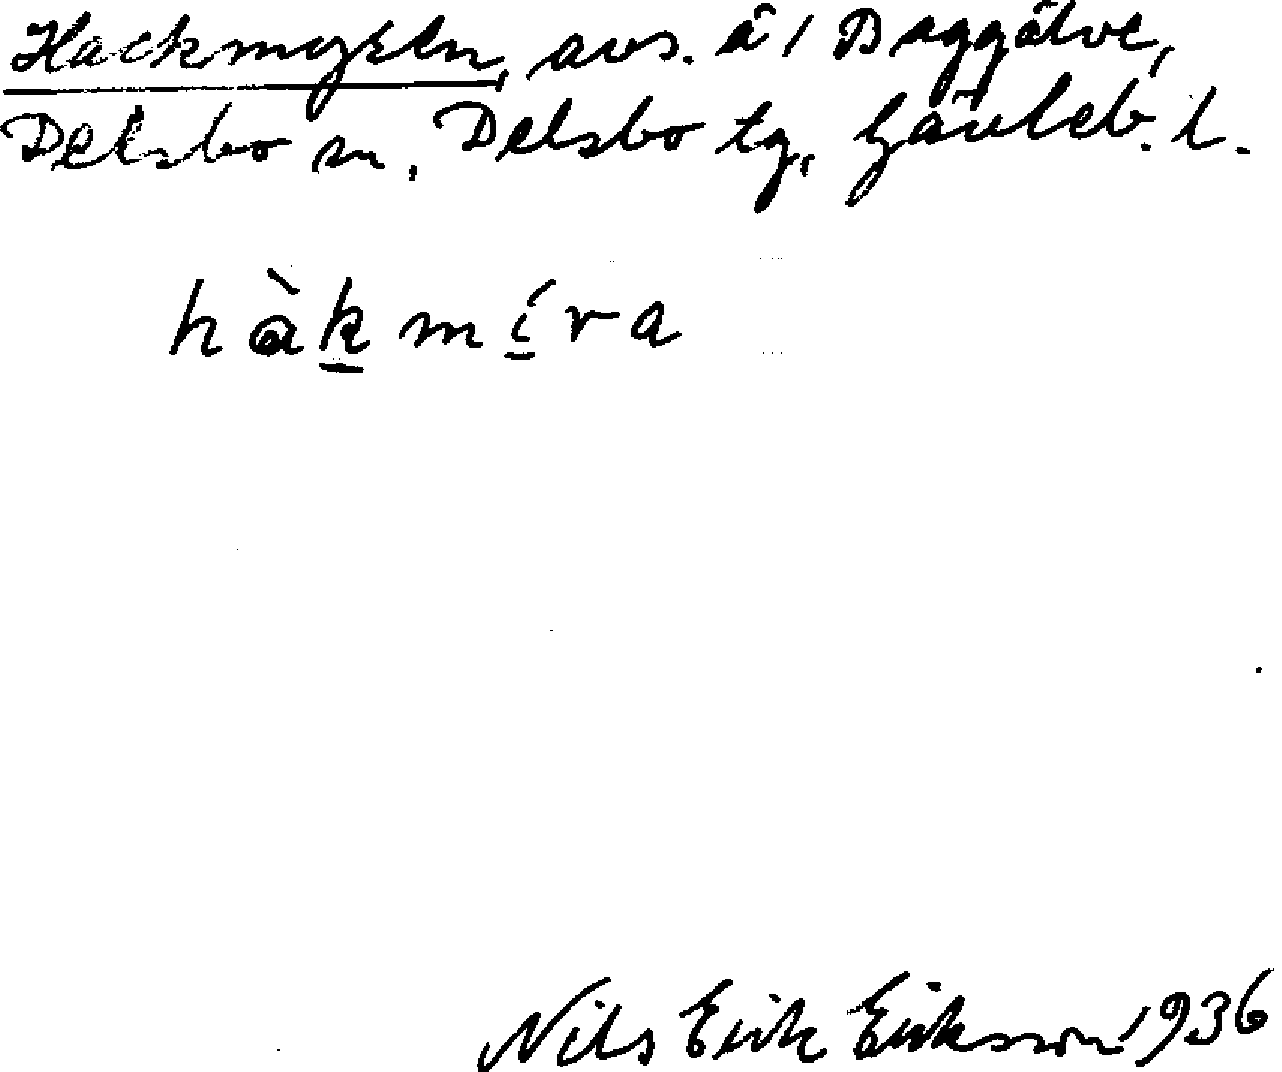 Hackmyren, avs. å 1 Baggälve,
Delsbo sn, Delsbo tg, Gävleb. l.
hàkmíra
Nils Erik Eriksson 1936